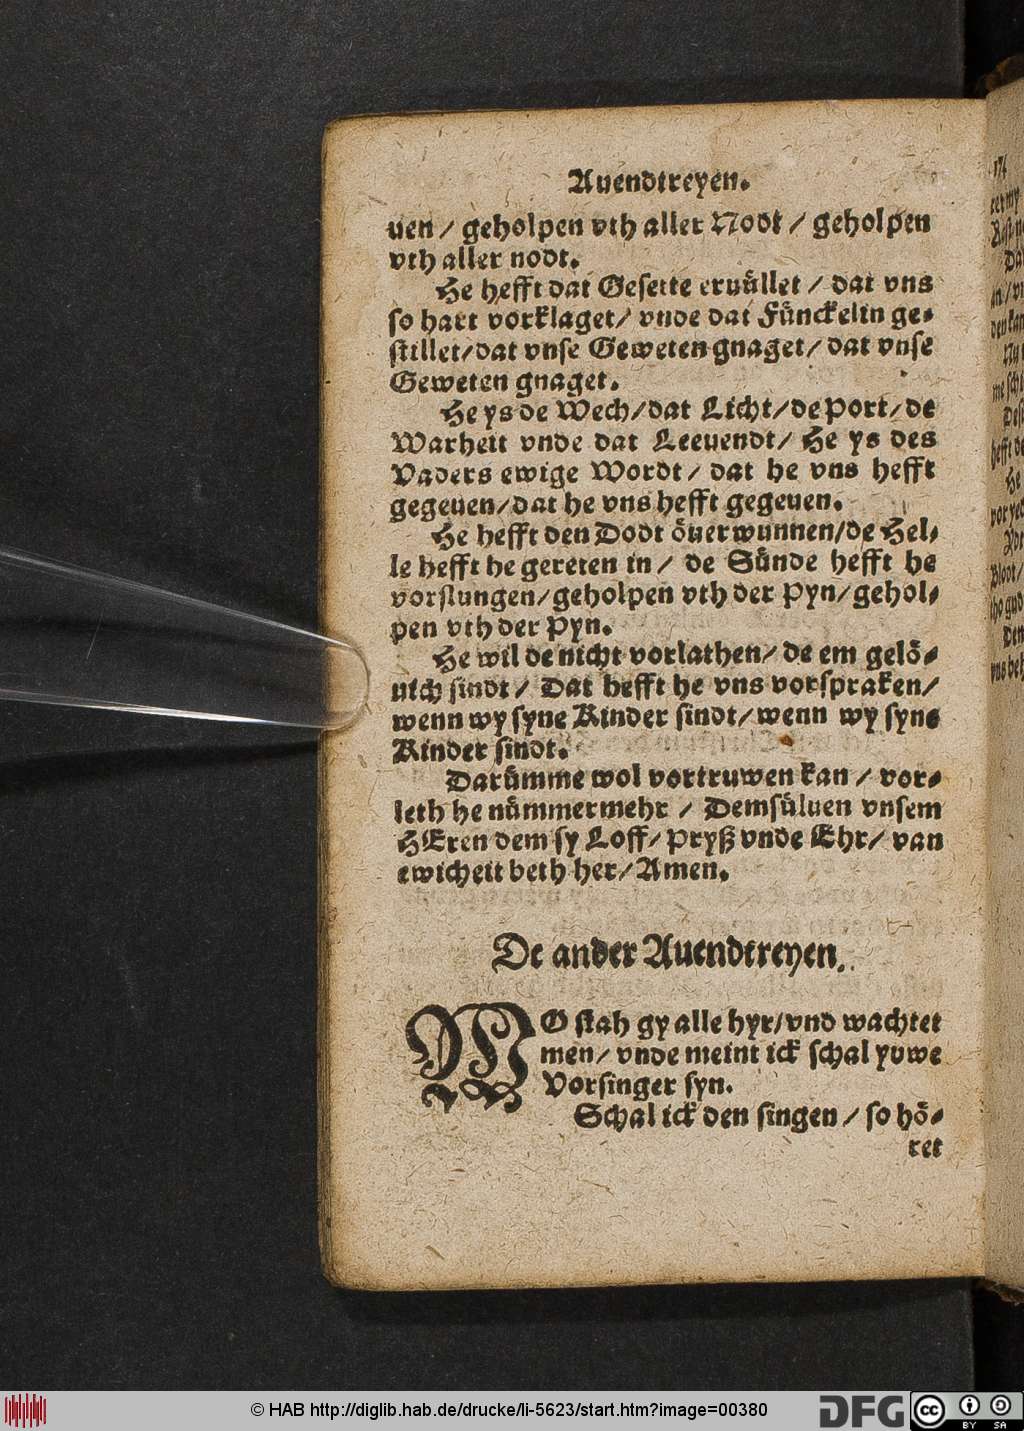 Auendtreyen.
uen / geholpen vth aller Nodt / geholpen
vth aller nodt.
He hefft dat Gesette eruüllet / dat vns
so hart vorklaget / vnde dat Fünckelin ge-
stillet / dat vnse Geweten gnaget / dat vnse
Geweten gnaget.
He ys de Wech / dat Licht / de Port / de
Warheit vnde dat Leeuendt / He ys des
Vaders ewige Wordt / dat he vns hefft
gegeuen / dat he vns hefft gegeuen.
He hefft den Dodt öuerwunnen / de Hel-
le hefft he gereten in / de Sünde hefft he
vorslungen / geholpen vth der Pyn / gehol-
pen vth der Pyn.
He wil de nicht vorlathen / de em gelö-
uich sindt / Dat hefft he vns vorspraken /
wenn wy syne Kinder sindt / wenn wy syne
Kinder sindt.
Darümme wol vortruwen kan / vor-
leth he nümmermehr / Demsüluen vnsem
HEren dem sy Loff / Pryß vnde Ehr / van
ewicheit beth her / Amen.
De ander Auendtreyen.
WO stah gy alle hyr / vnd wachtet
men / vnde meint ick schal yuwe
Vorsinger syn.
Schal ick den singen / so hö-
ret
© HAB http://diglib.hab.de/drucke/li-5623/start.htm?image=00380
DFG
cc
BY SA